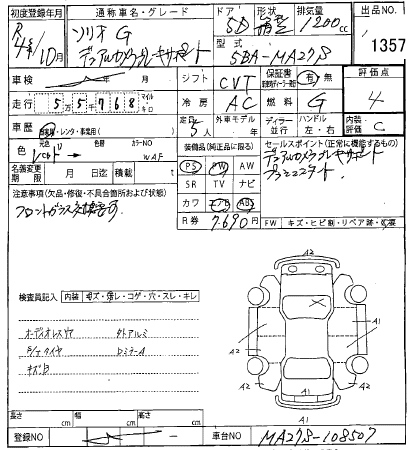 初度登録年月 通称車名・グレード ドア 形状 排気量 出品NO.
R 4年 10月 ソリオ G 5D 箱型 1200cc 1357
デュアルカメラブレーキサポート 型式 5BA-MA27S
車検 年 月 シフト CVT 保証書 有 無 評価点
走行 55768 マイル キロ 冷房 AC 燃料 G 4
車歴 自家用・レンタ・事業用( ) 定員 5人 外車モデル 年 ディーラー 並行 ハンドル 左・右 内装評価 C
色 元色 色替 カラーNO WAF
装備品(純正品に限る) セールスポイント(正常に機能するもの)
PS PW AW デュアルカメラブレーキサポート
名義変更期限 月 日迄 積載 t SR TV ナビ プッシュスタート
注意事項(欠品・修復・不具合箇所および状態) カワ エアB ABS
フロントガラス交換要す R券 7690円 FW キズ・ヒビ割・リペア跡・要
検査員記入 内装 キズ・汚レ・コゲ・穴・スレ・キレ
オーディオレス 外アルミ
Dミラー
キズ
A2
A2 A2
A1
A2 A2
A1
A1
長さ cm 幅 cm 高さ cm
登録NO 車台NO MA27S-108507